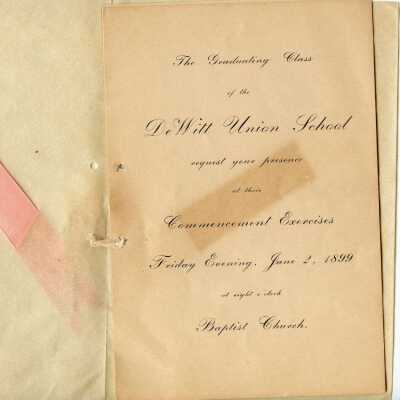 The Graduating Class
of the
DeWitt Union School
request your presence
at their
Commencement Exercises
Friday Evening, June 2, 1899
at eight o'clock
Baptist Church.